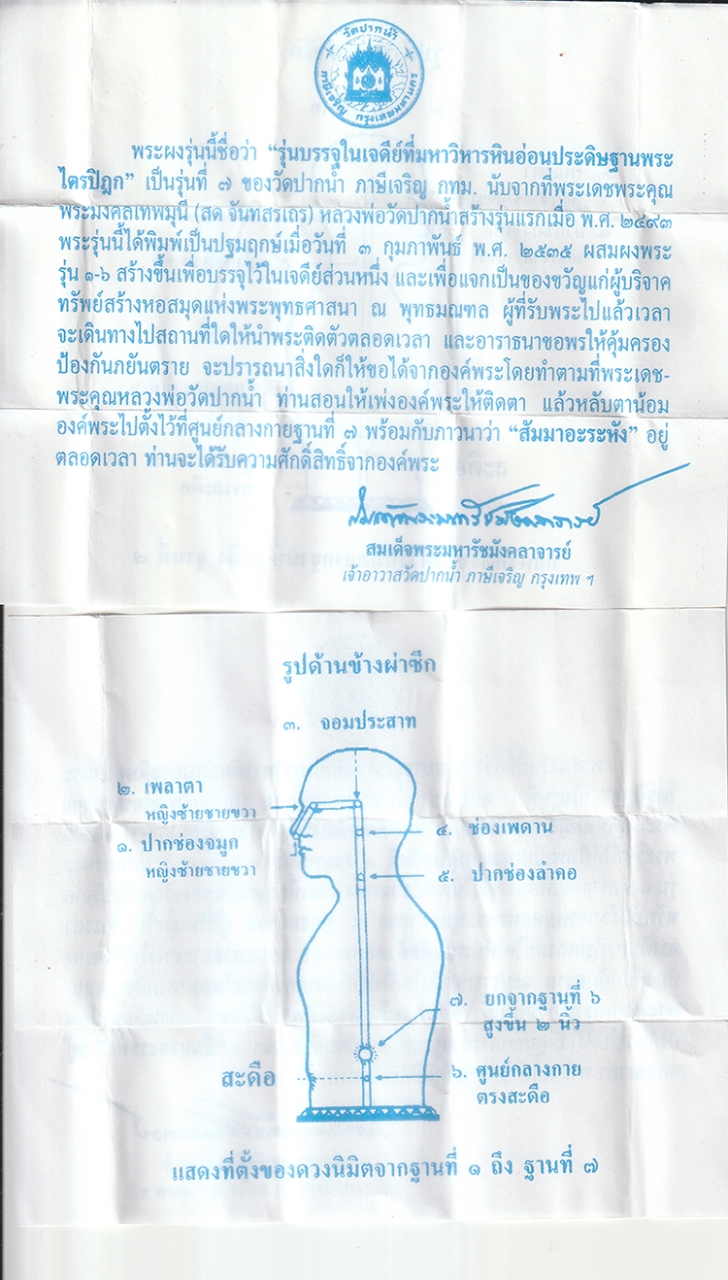 วัดปากน้ำ
ภาษีเจริญ กรุงเทพมหานคร
พระผงรุ่นนี้ชื่อว่า “รุ่นบรรจุในเจดีย์ที่มหาวิหารหินอ่อนประดิษฐานพระ
ไตรปิฎก” เป็นรุ่นที่ ๗ ของวัดปากน้ำ ภาษีเจริญ กทม. นับจากที่พระเดชพระคุณ
พระมงคลเทพมุนี (สด จันทสรเถร) หลวงพ่อวัดปากน้ำสร้างรุ่นแรกเมื่อ พ.ศ. ๒๔๙๓
พระรุ่นนี้ได้พิมพ์เป็นปฐมฤกษ์เมื่อวันที่ ๓ กุมภาพันธ์ พ.ศ. ๒๕๓๕ ผสมผงพระ
รุ่น ๑-๖ สร้างขึ้นเพื่อบรรจุไว้ในเจดีย์ส่วนหนึ่ง และเพื่อแจกเป็นของขวัญแก่ผู้บริจาค
ทรัพย์สร้างหอสมุดแห่งพระพุทธศาสนา ณ พุทธมณฑล ผู้ที่รับพระไปแล้วเวลา
จะเดินทางไปสถานที่ใดให้นำพระติดตัวตลอดเวลา และอาราธนาขอพรให้คุ้มครอง
ป้องกันภยันตราย จะปรารถนาสิ่งใดก็ให้ขอได้จากองค์พระโดยทำตามที่พระเดช-
พระคุณหลวงพ่อวัดปากน้ำ ท่านสอนให้เพ่งองค์พระให้ติดตา แล้วหลับตาน้อม
องค์พระไปตั้งไว้ที่ศูนย์กลางกายฐานที่ ๗ พร้อมกับภาวนาว่า “สัมมาอะระหัง” อยู่
ตลอดเวลา ท่านจะได้รับความศักดิ์สิทธิ์จากองค์พระ
สมเด็จพระมหารัชมังคลาจารย์
สมเด็จพระมหารัชมังคลาจารย์
เจ้าอาวาสวัดปากน้ำ ภาษีเจริญ กรุงเทพ ฯ
รูปด้านข้างผ่าซีก
๓. จอมประสาท
๒. เพลาตา
หญิงซ้ายชายขวา
๑. ปากช่องจมูก
หญิงซ้ายชายขวา
๔. ช่องเพดาน
๕. ปากช่องลำคอ
๗. ยกจากฐานที่ ๖
สูงขึ้น ๒ นิ้ว
สะดือ
๖. ศูนย์กลางกาย
ตรงสะดือ
แสดงที่ตั้งของดวงนิมิตจากฐานที่ ๑ ถึง ฐานที่ ๗